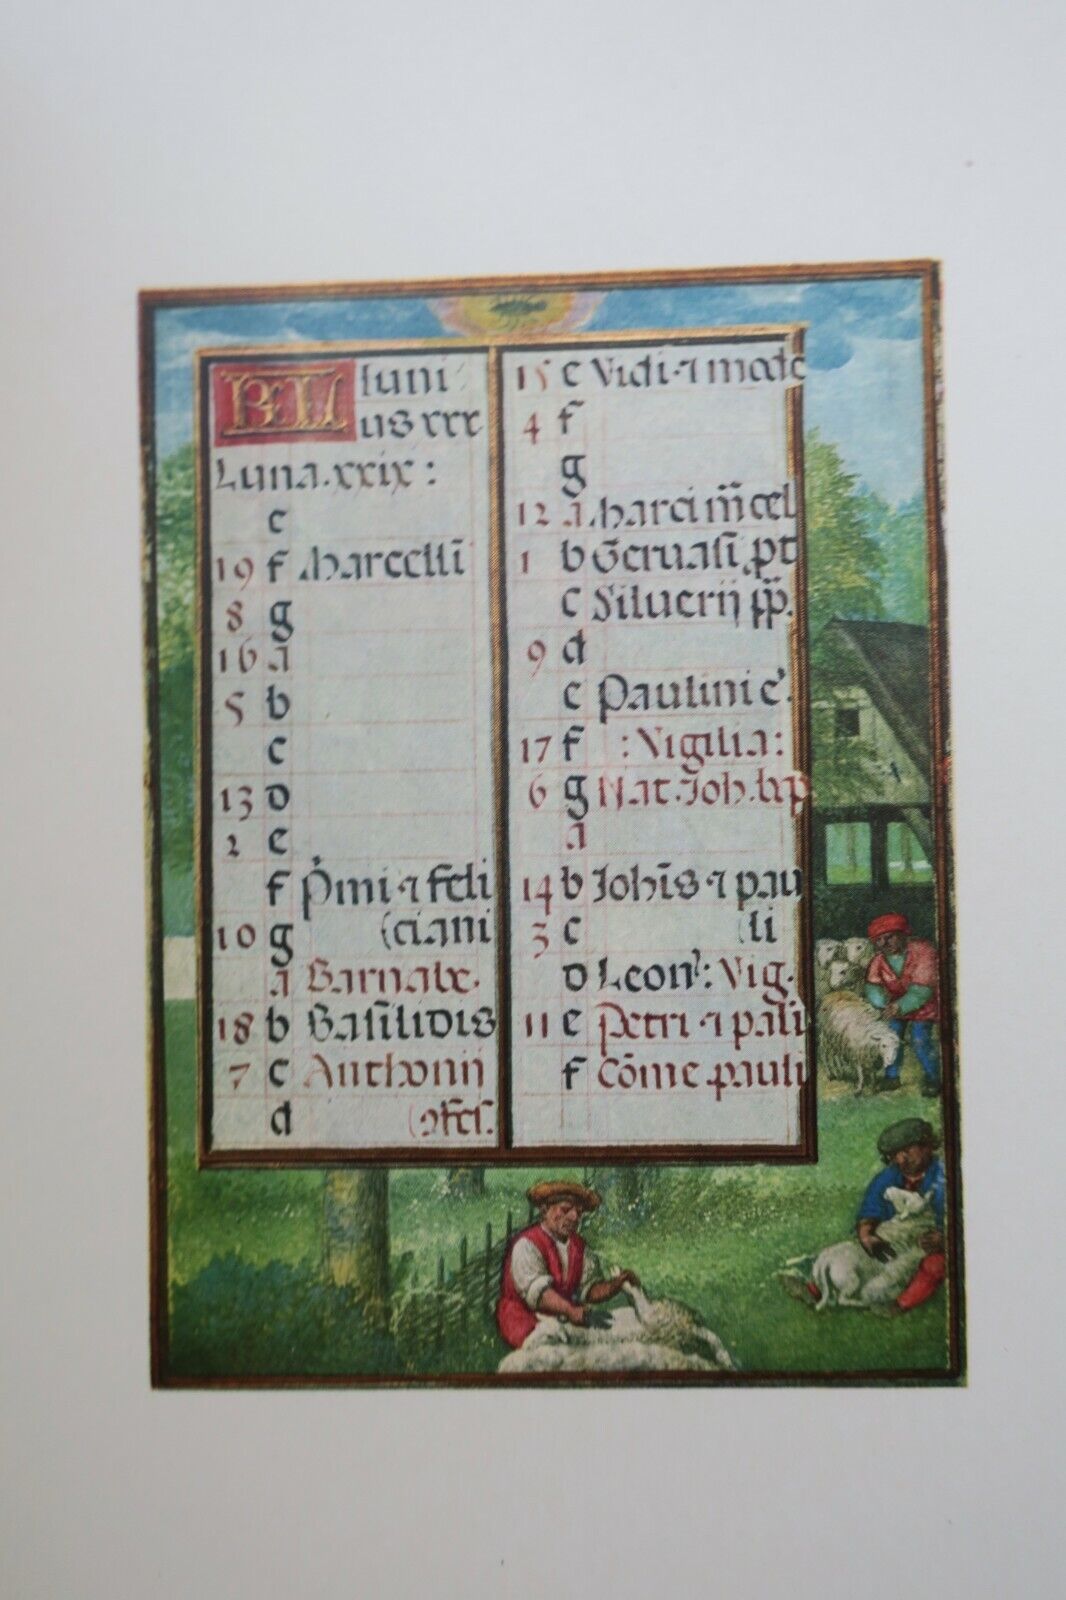 KL Iuni
us xxx
Luna.xxix:
e
19 f Marcelli
8 g
16 a
5 b
c
13 d
2 e
f P̓mi ⁊ feli
10 g (ciani
a Barnabe.
18 b Basilidis
7 c Anthonii
d (ↄfes.
15 e Vidi ⁊ mode
4 f
g
12 a Marci m̄cel
1 b Geruasi pt
c Siluerij pp̄.
9 d
e Paulini e᾽.
17 f :Vigilia:
6 g Nat. Joh. bp
a
14 b Johīs ⁊ pau
3 c (li
d Leon᾽: Vig.
11 e Petri ⁊ pali
f Cōme. pauli